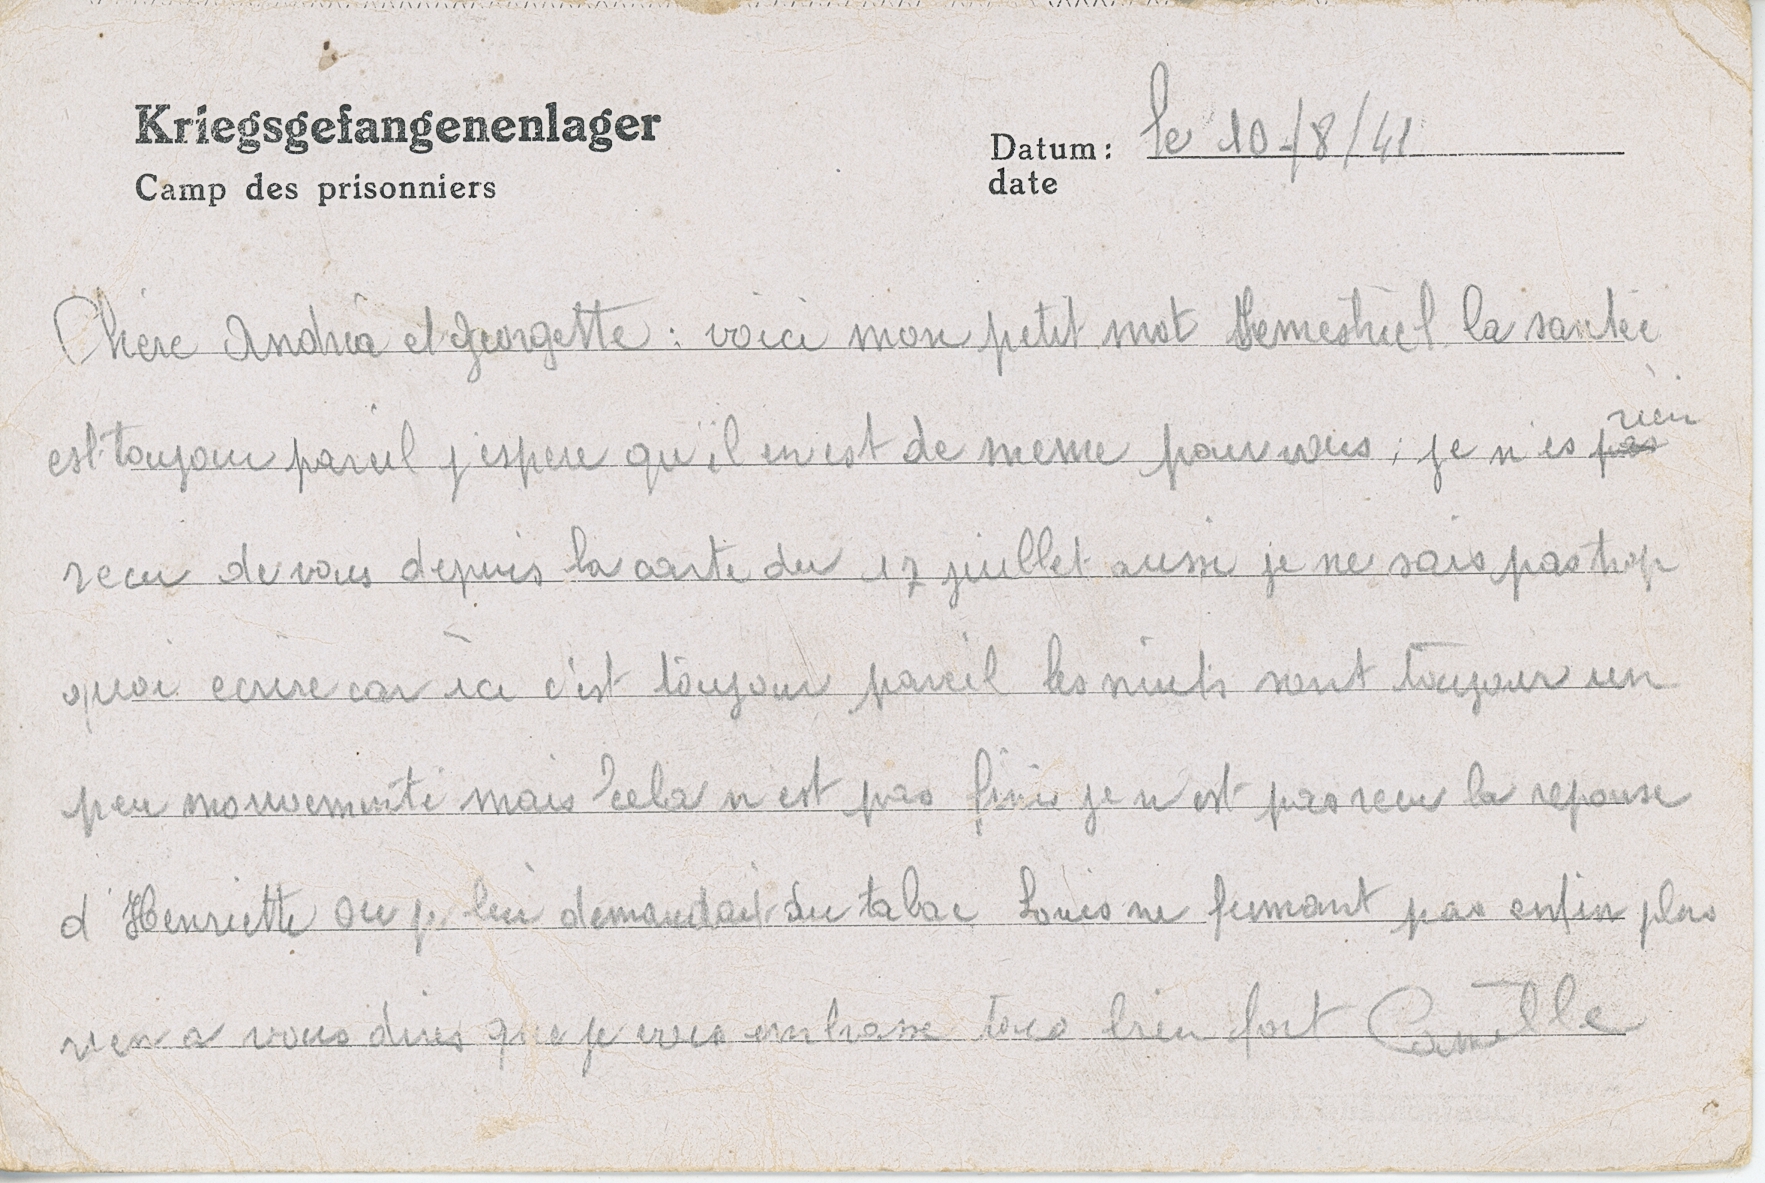 Kriegsgefangenenlager
Camp des prisonniers
Datum: le 10/8/41
date
Chère Andréa et Georgette : voici mon petit mot semestriel la santée
est toujour pareil j'espere qu'il en est de meme pour vous ; je n'es pas rien
recu de vous depuis la carte du 17 juillet aussi je ne sais pas trop
quoi ecrire car ici c'est toujour pareil les nuits sont toujour un
peu mouvementé mais cela n'est pas fini je n'est pas recu la reponse
d'Henriette ou je lui demandait du tabac Louis ne fumant pas enfin plus
rien a vous dires que je vous embrasse tous bien fort Camille